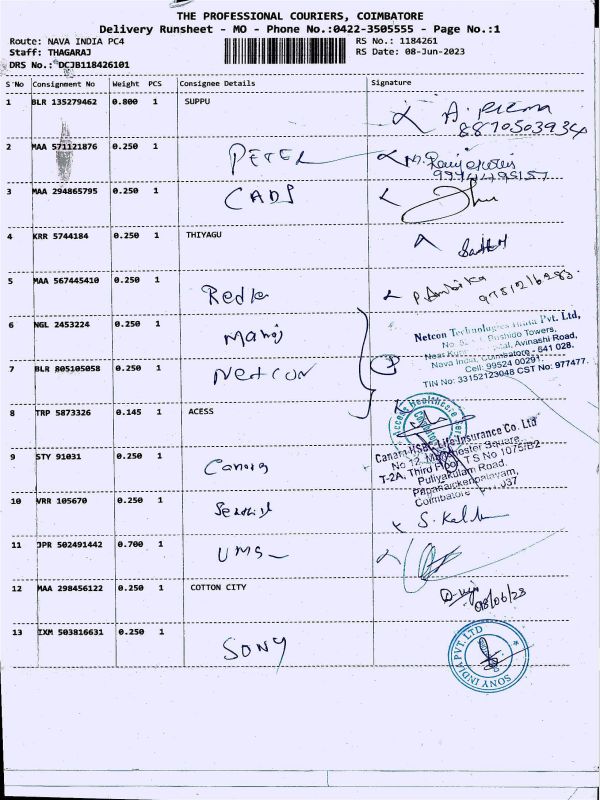 THE PROFESSIONAL COURIERS, COIMBATORE
Delivery Runsheet - MO - Phone No.:0422-3505555 - Page No.:1
Route: NAVA INDIA PC4 RS No.: 1184261
Staff: THAGARAJ RS Date: 08-Jun-2023
DRS No.: *DCJB118426101
S No Consignment No Weight PCS Consignee Details Signature
1 BLR 135279462 0.800 1 SUPPU
8870503934
2 MAA 571121876 0.250 1 PETER
3 MAA 294865795 0.250 1 CADS
4 KRR 5744184 0.250 1 THIYAGU
5 MAA 567445410 0.250 1 P. Ambika
6 NGL 2453224 0.250 1 Manoj
Netcon Technologies India Pvt. Ltd,
Bushido Towers,
Avinashi Road,
Nava India, Coimbatore - 641 028.
Cell: 99524 00291
TIN No: 33152123048 CST No: 977477.
7 BLR 805105058 0.250 1 NetCON
8 TRP 5873326 0.145 1 ACESS
Access Healthcare
Canara HSBC Life Insurance Co. Ltd
No 12, Manchester Square,
T-2A, Third Floor, T S No 1075/B2
Puliyakulam Road,
Papanaickenpalayam,
Coimbatore
9 STY 91031 0.250 1 Canara
10 VRR 105670 0.250 1
11 JPR 502491442 0.700 1 UMS
12 MAA 298456122 0.250 1 COTTON CITY
08/06/23
13 IXM 503816631 0.250 1 SONY
SONY INDIA PVT. LTD